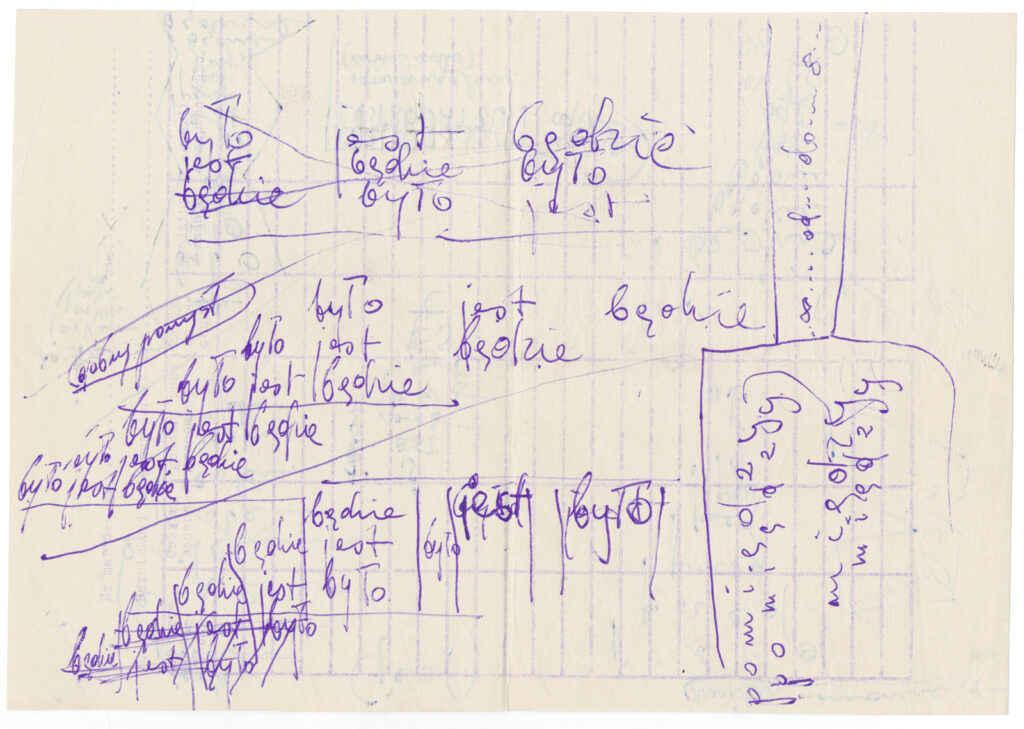 było jest będzie
jest będzie było
będzie było jest
było jest będzie
było jest będzie
było jest będzie
było jest będzie
było jest będzie
było jest będzie
będzie jest było
będzie jest było
będzie jest było
będzie jest było
będzie jest było
∞.....od....do....∞...
pomiędzy
po między
między
między